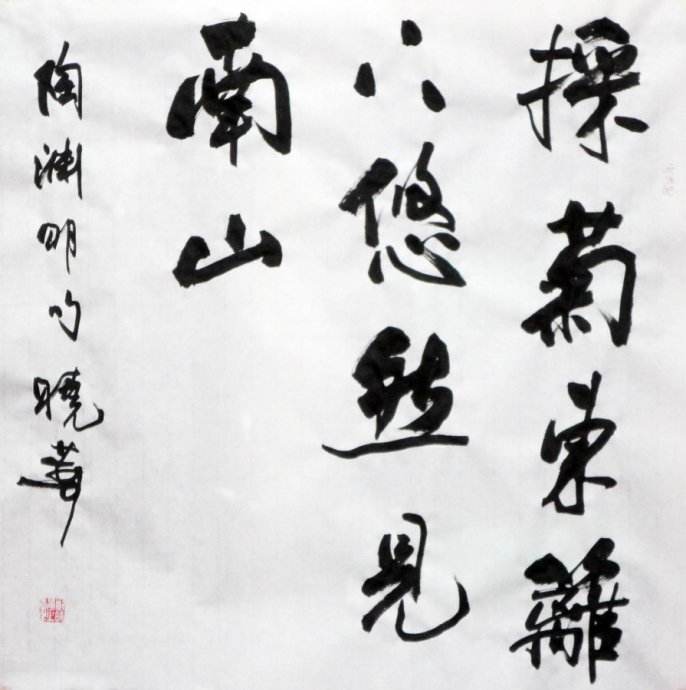 採菊東籬
下悠然見
南山
陶渊明句曉